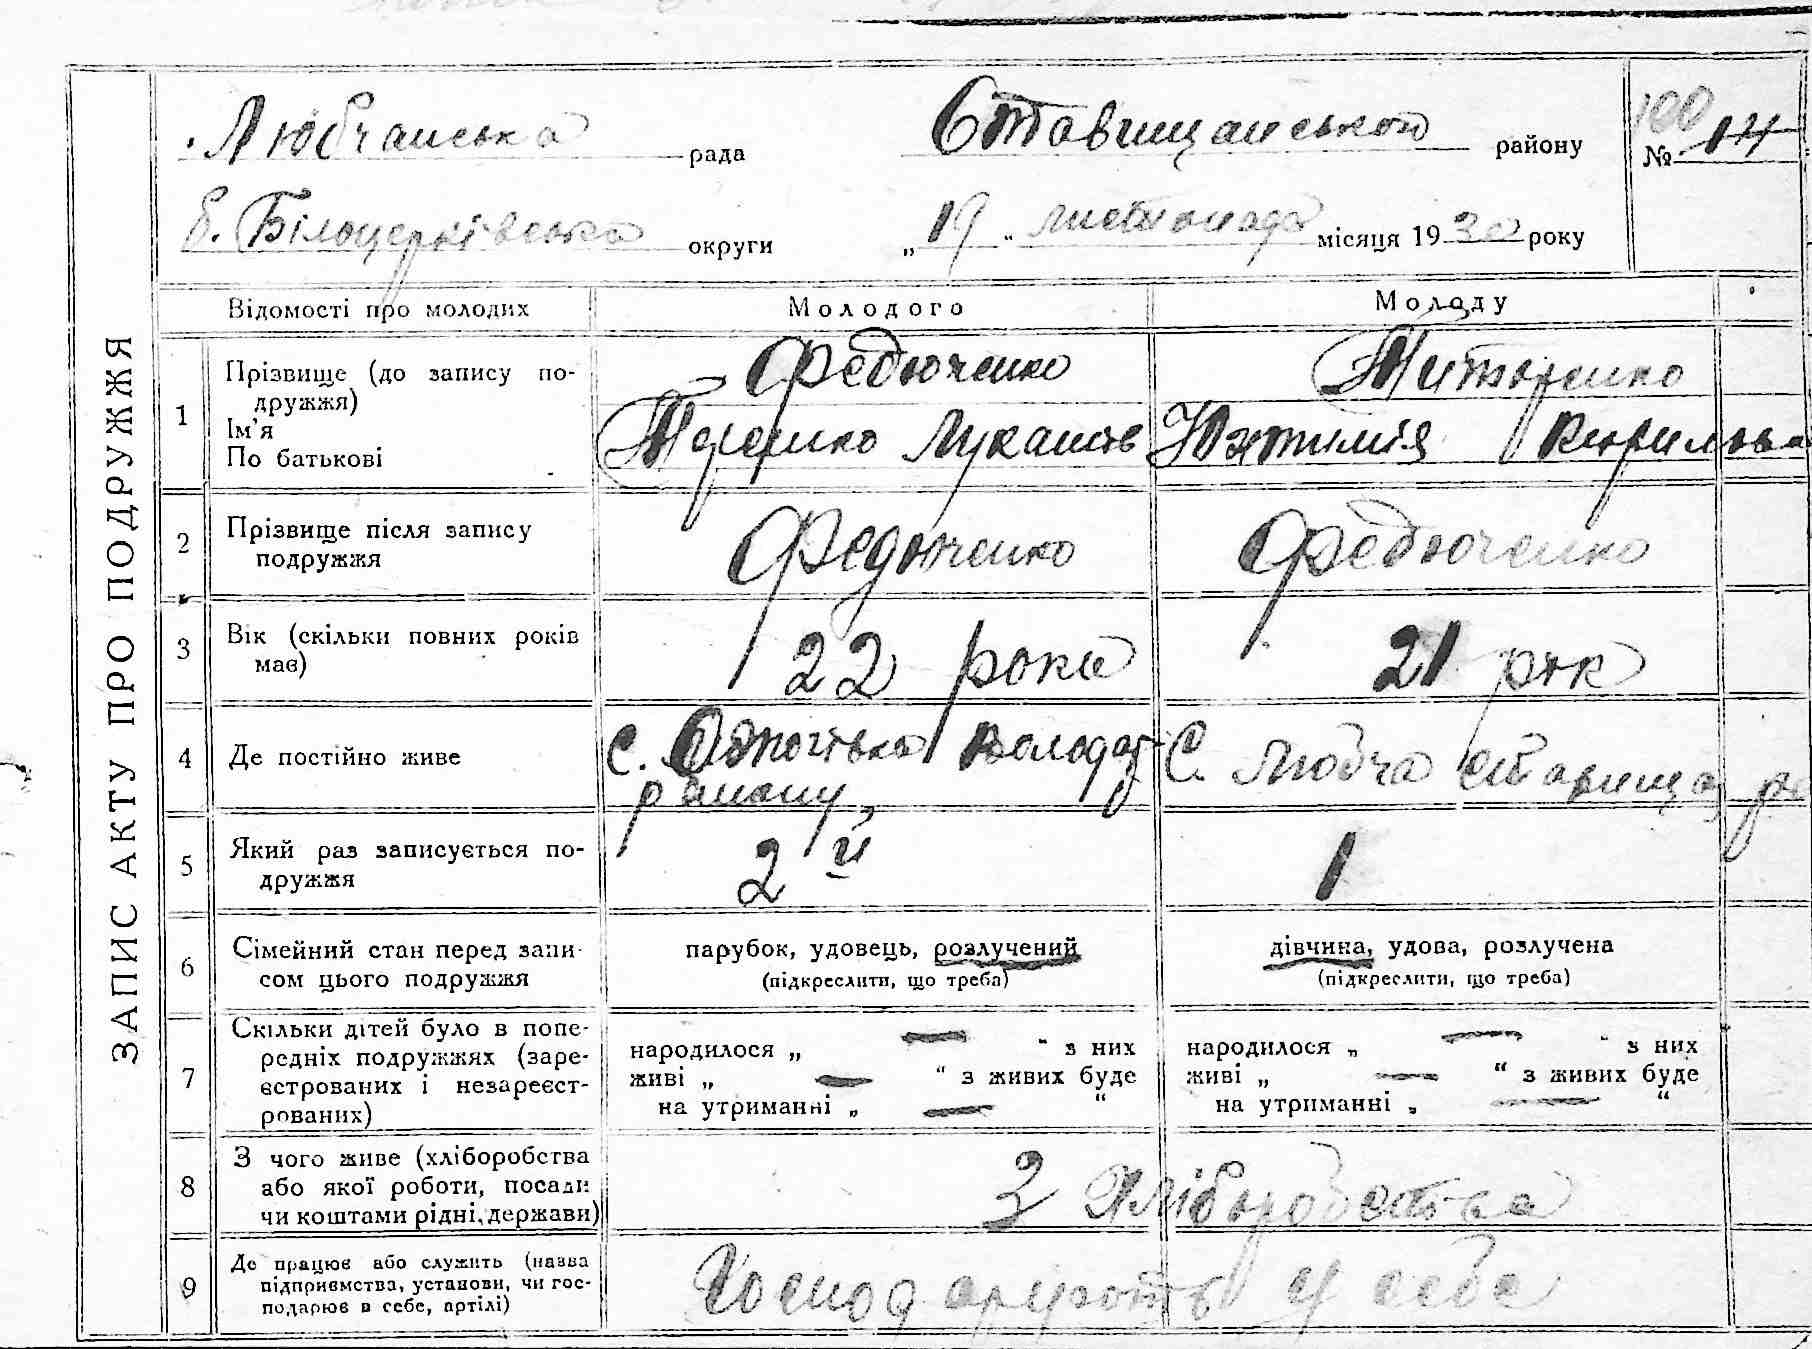 ЗАПИС АКТУ ПРО ПОДРУЖЖЯ
Любчанська рада Ставищанського району
100
№ 14
б. Білоцерківська округи „ 19 “ листопада місяця 1930 року
Відомості про молодих Молодого Молоду
1 Прізвище (до запису по-
дружжя)
Ім'я
По батькові
Федюченко
Терешко Лукашів
Титаренко
Юхтимія Кирилова
2 Прізвище після запису
подружжя
Федюченко Федюченко
3 Вік (скільки повних років
має)
22 роки 21 рік
4 Де постійно живе
С. Володар-
району,
С. Любча Ставищ.
5 Який раз записується по-
дружжя
2й 1
6 Сімейний стан перед запи-
сом цього подружжя
парубок, удовець, розлучений
(підкреслити, що треба)
дівчина, удова, розлучена
(підкреслити, що треба)
7 Скільки дітей було в попе-
редніх подружжях (заре-
єстрованих і незареєст-
рованих)
народилося „ — “ з них
живі „ — “ з живих буде
на утриманні „ — “
народилося „ — “ з них
живі „ — “ з живих буде
на утриманні „ — “
8 З чого живе (хліборобства
або якої роботи, посади
чи коштами рідні, держави)
З хліборобства
9 Де працює або служить (назва
підприємства, установи, чи гос-
подарює в себе, артілі)
Господарують у себе